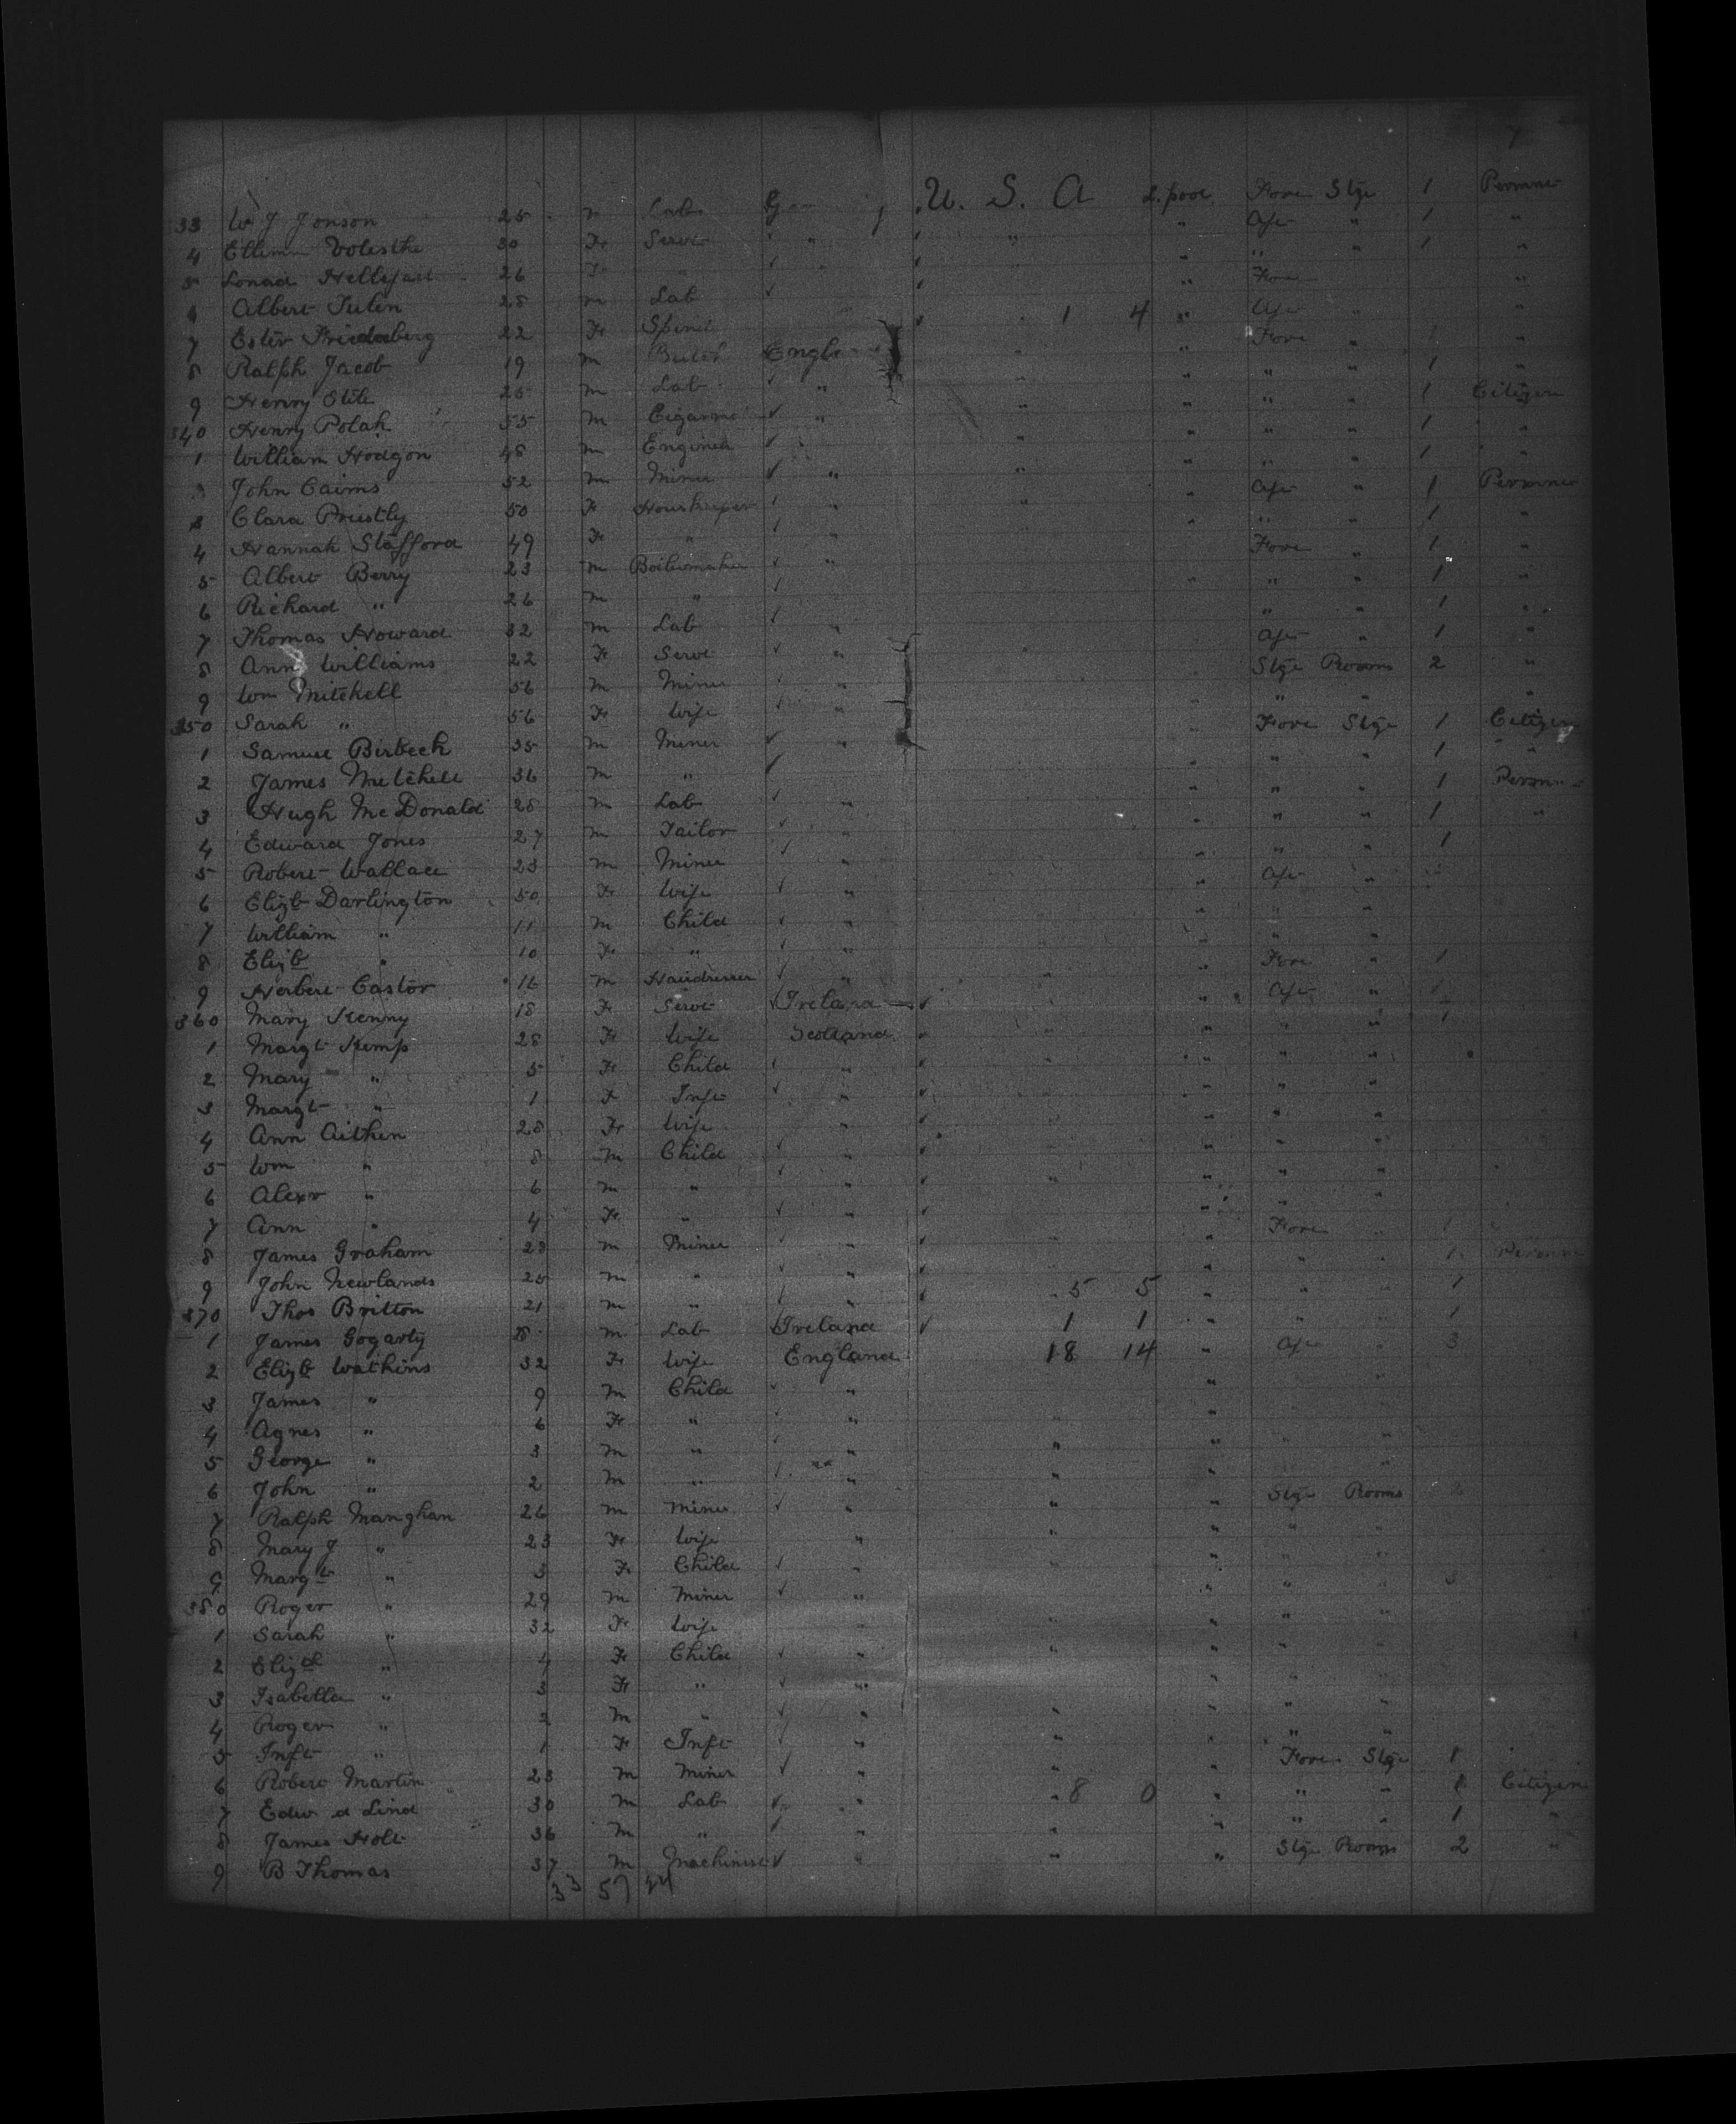 7
33 W J Jonson 25 m Lab Ger U. S. A L.pool Fore Stge 1 Permnt
4 30 Fe Servt " " " Aft " 1 "
5 26 Fe " " " " 1 "
Albert 28 m Lab " Fore "
7 Ester 22 Fe 1 4 " Aft " "
8 Ralph Jacob 19 m Engl " " Fore " 1 "
9 Henry 25 m Lab " " " " " 1 "
340 Henry Polak 55 m Cigarma " " " " " 1 Citizen
1 William Hodgon 48 m Engineer " " " " 1 "
John Cairns 52 m Miner " " " " " 1 "
Clara Priestly 50 Fe Houskeeper " " " Aft " 1 Permnt
4 Hannah Stafford 49 Fe " " " " 1 "
5 Albert Berry 23 m Boilermaker " Fore " 1 "
6 Richard " 26 m " " " " 1 "
7 Thomas Howard 32 m Lab " " " 1 "
8 Ann Williams 22 Fe Servt " " Aft " 1 "
9 Wm Mitchell 56 m Miner " Stge Rooms 2 "
350 Sarah " 56 Fe Wife " " " " "
1 Samuel Birbeck 35 m Miner " " Fore Stge 1 Citizen
2 James Mitchell 36 m " " " " 1 "
3 Hugh McDonald 28 m Lab " " " " 1 Permn
4 Edward Jones 27 m Tailor " " " " 1 "
5 Robert Wallace 23 m Miner " " " " 1
6 Elizb Darlington 50 Fe Wife " " Aft "
7 William " 11 m Child " " " "
8 Elizb " 10 Fe " " " " "
9 Herbert Castor 16 m Hairdresser " " " Fore " 1
360 Mary Kenny 18 Fe Servt Ireland " " Aft " 1
1 Margt Kemp 28 Fe Wife Scotland " " " " 1
2 Mary " 5 Fe Child " " " " "
3 Margt " 1 Fe Inft " " " "
4 Ann Aitken 28 Fe Wife " " " "
5 Wm " 8 m Child " " " "
6 Alexr " 6 m " " " " " "
7 Ann " 4 Fe " " " " "
8 James Graham 23 m Miner " " Fore 1
9 John Newlands 25 m " " " " " 1 Permn
370 Thos Britton 21 m " " " 5 5 " " " 1
1 James Gogarty m Lab Ireland 1 1 " " 1
2 Elizb Watkins 32 Fe Wife England 18 14 " Aft " 3
3 James " 9 m Child " "
4 Agnes " 6 Fe " " " "
5 George " 3 m " " " " " "
6 John " 2 m " " " " "
7 Ralph Manghan 26 m Miner " " " Stge Rooms 2
8 Mary J " 23 Fe Wife " " " " "
9 Margt " 3 Fe Child " " " " "
380 Roger " 29 m Miner " " " " 3
1 Sarah " 32 Fe Wife " " " " "
2 Elizth " 4 Fe Child " " " "
3 Isabella " 3 Fe " " " " "
4 Roger " 2 m " " " " " "
5 Inft " 1 Fe Inft " " " " "
6 Robert Martin 23 m Miner " " " Fore Stge 1
7 30 m Lab " 8 0 " " " 1 Citizen
8 James Holt 36 m " " " " " " 1 "
9 B Thomas 37 m Machinist " " " Stge Rooms 2 "
33 57